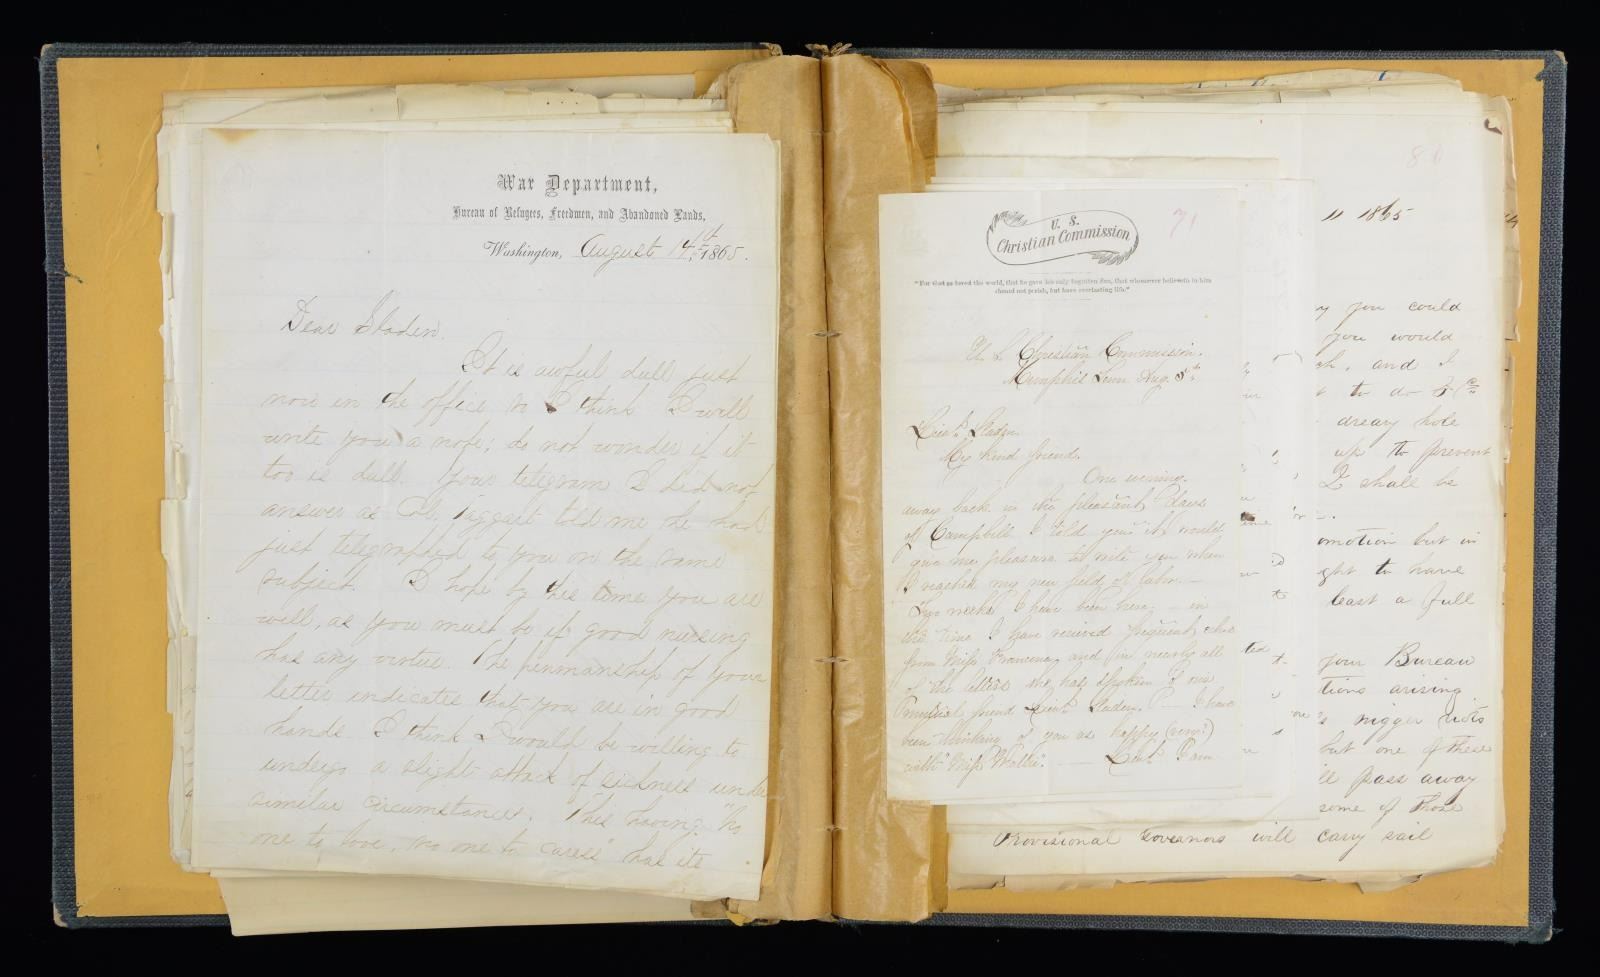 War Department,
Bureau of Refugees, Freedmen, and Abandoned Lands,
Washington, August 14th 1865.
Dear Sladen.
It is awful dull just
now in the office, so I think I will
write you a note; do not wonder if it
too is dull. Your telegram I did not
answer as Col. Taggart told me he had
just telegraphed to you on the same
subject. I hope by this time you are
well, as you must be if good nursing
has any virtue. The penmanship of your
letter indicates that you are in good
hands. I think I would be willing to
undergo a slight attack of sickness under
similar circumstances. This having "no
one to love, no one to caress" has its
71
U. S.
Christian Commission
"For God so loved the world, that he gave his only begotten Son, that whosoever believeth in him
should not perish, but have everlasting life."
U. S. Christian Commission.
Memphis Tenn Aug. 5th
Lieut. Sladen.
My kind friend.
One evening.
away back in the pleasant days
of Campbell I told you it would
give me pleasure to write you when
I reached my new field of labor. —
Two weeks I have been here; — in
this time I have received frequent
from Miss and in nearly all
of the letters she has spoken of our
mutual friend Lieut. Sladen. — I have
been thinking of you as happy
with Miss — Lieut.
80
11 1865
you could
you would
and I
to do
dreary hole
up to prevent
I shall be
omotion but in
ght to have
least a full
your Bureau
tions arising
nigger riots
but one of these
ll pass away
some of those
Provisional Governors will carry sail